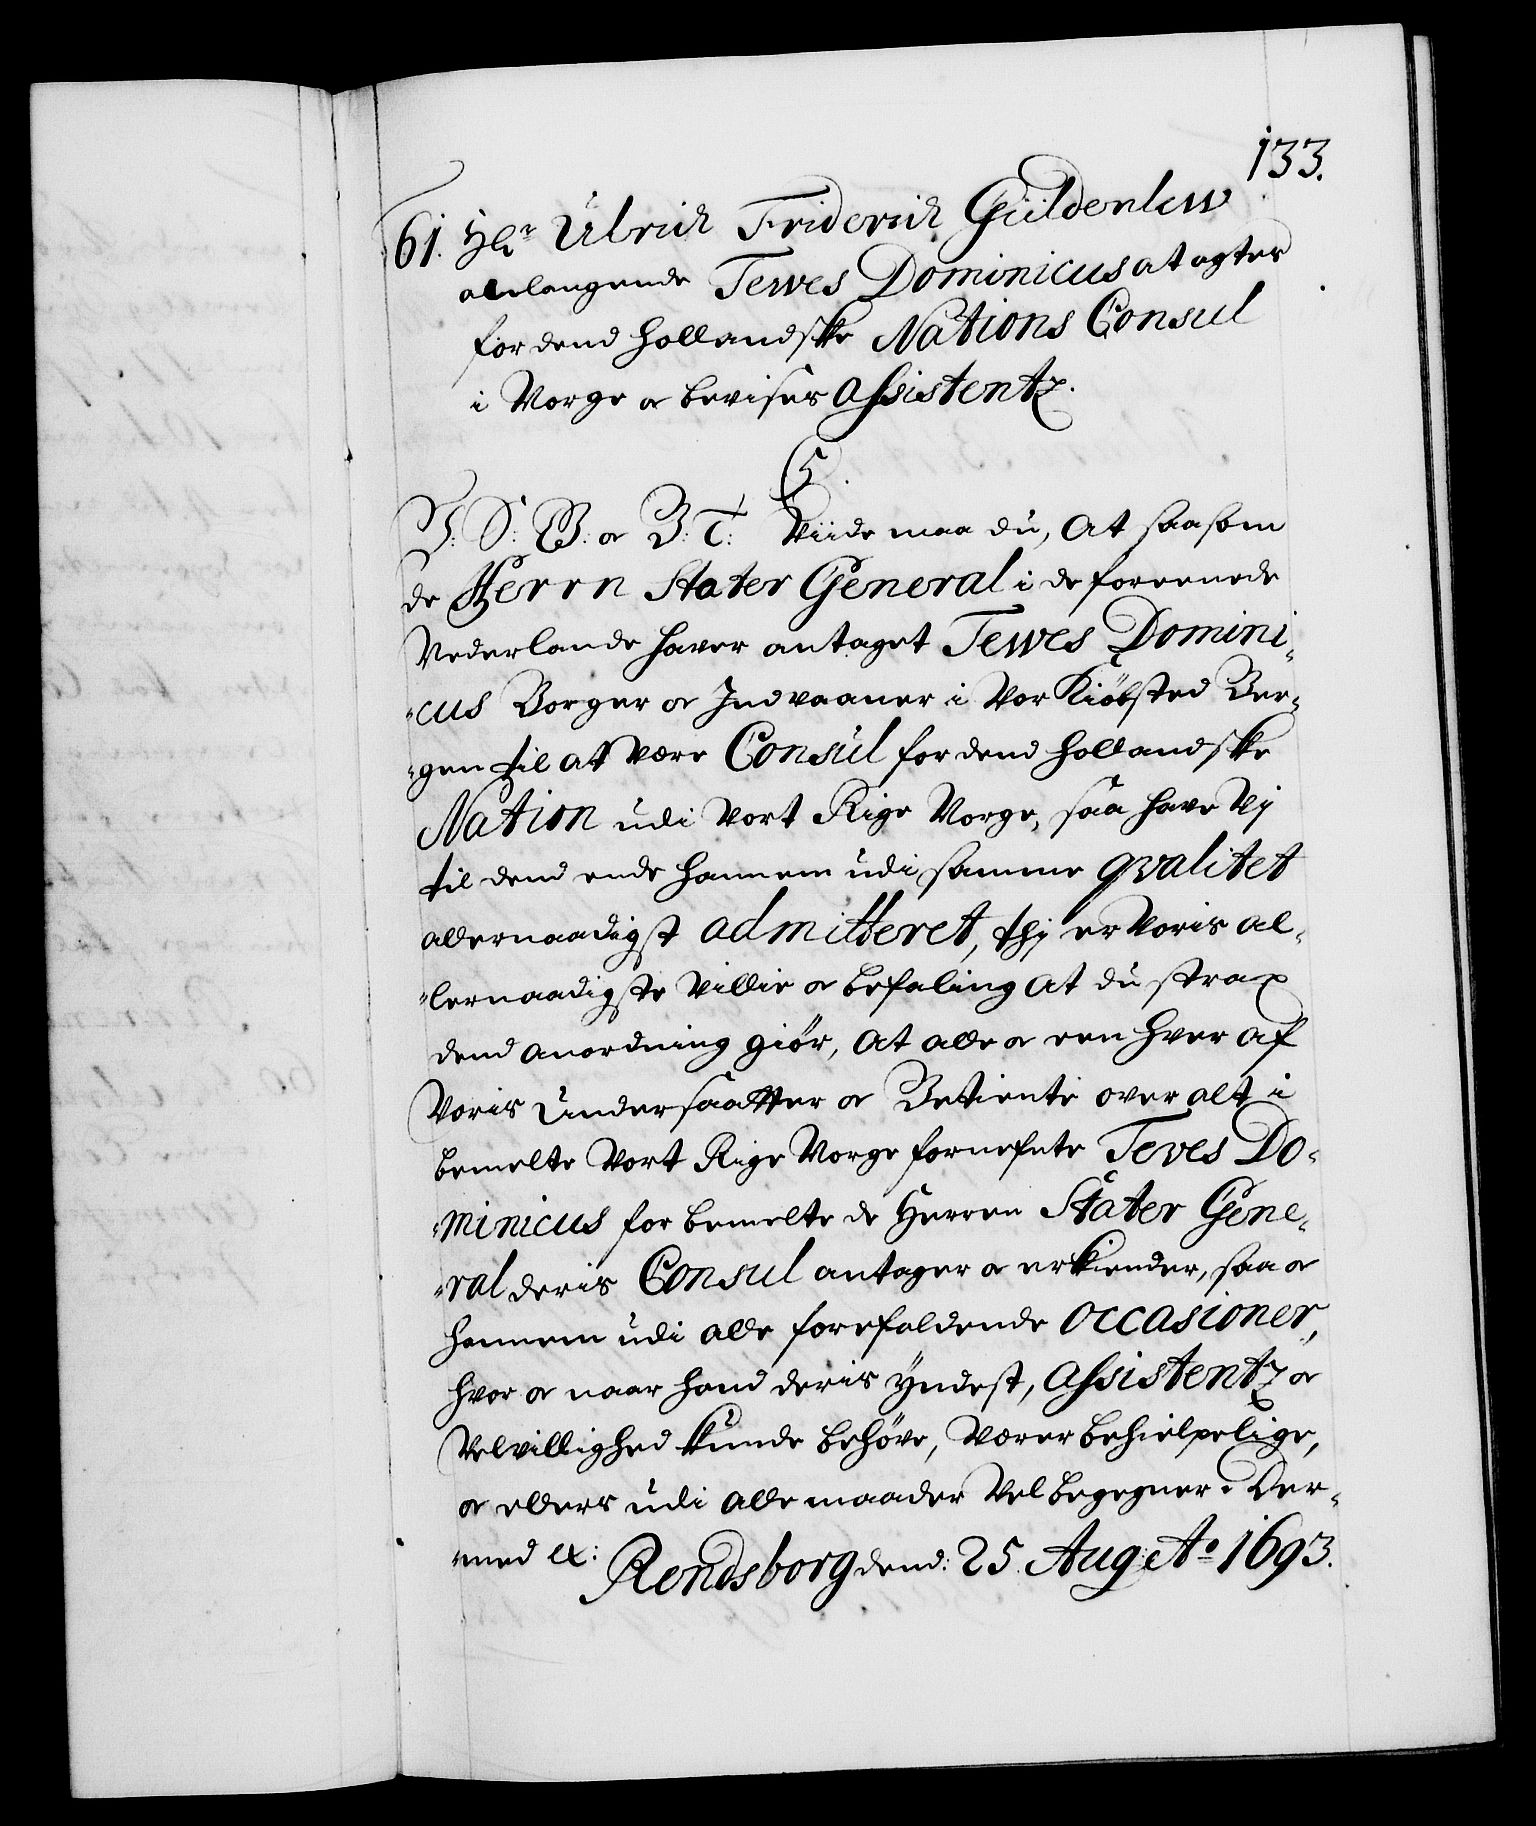 133.
61. Hr Ulrich Friderich Güldenlew
anlangende Tewes Dominicus at agtes
for dend Hollandske Nations Consul
i Norge oc bevises assistentz.
C5.
V: S: G: oc B: T: Viide maa du, At saasom
de Herrn Stater General i de foreenede
Nederlande hafver antaget Tewes Domini-
-cus Borger oc Indvaaner i Vor Kiøbsted Ber-
-gen til at være Consul for dend Hollandske
Nation udi Vort Rige Norge, saa have Vj
til dend ende hannem udi samme qvalitet
allernaadigst admitteret, thj er Voris al-
-lernaadigste Villie oc befaling at du strax
dend anordning giör, At alle oc een hver af
Voris Undersaatter oc Betiente over alt i
bemelte Vort Rige Norge fornefnte Teves Do-
-minicus for bemelte de Herren Stater Gene-
-ral deris Consul antager oc erkiender, saa oc
hannem udi alle forefaldende occasioner,
hvor oc naar hand deris yndest, assistentz oc
Velvillighed kunde behöve, Værer behielpelige,
oc ellers udi alle maader Vel begegner. Der-
-med etc: Rendsborg dend: 25. Aug: Ao 1693.